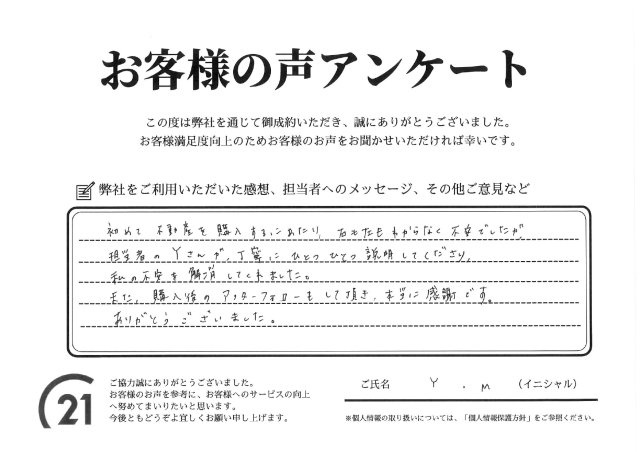 お客様の声アンケート
この度は弊社を通じて御成約いただき、誠にありがとうございました。
お客様満足度向上のためお客様のお声をお聞かせいただければ幸いです。
弊社をご利用いただいた感想、担当者へのメッセージ、その他ご意見など
初めて不動産を購入するにあたり、右も左もわからなく不安でしたが、
担当者のYさんが、丁寧にひとつひとつ説明してくださり、
私の不安を解消してくれました。
また、購入後のアフターフォローもして頂き、本当に感謝です。
ありがとうございました。
ご協力誠にありがとうございました。
お客様のお声を参考に、お客様へのサービスの向上
へ努めてまいりたいと思います。
今後ともどうぞよろしくお願い申し上げます。
C21
ご氏名 Y . M (イニシャル)
※個人情報の取り扱いについては、「個人情報保護方針」をご参照ください。